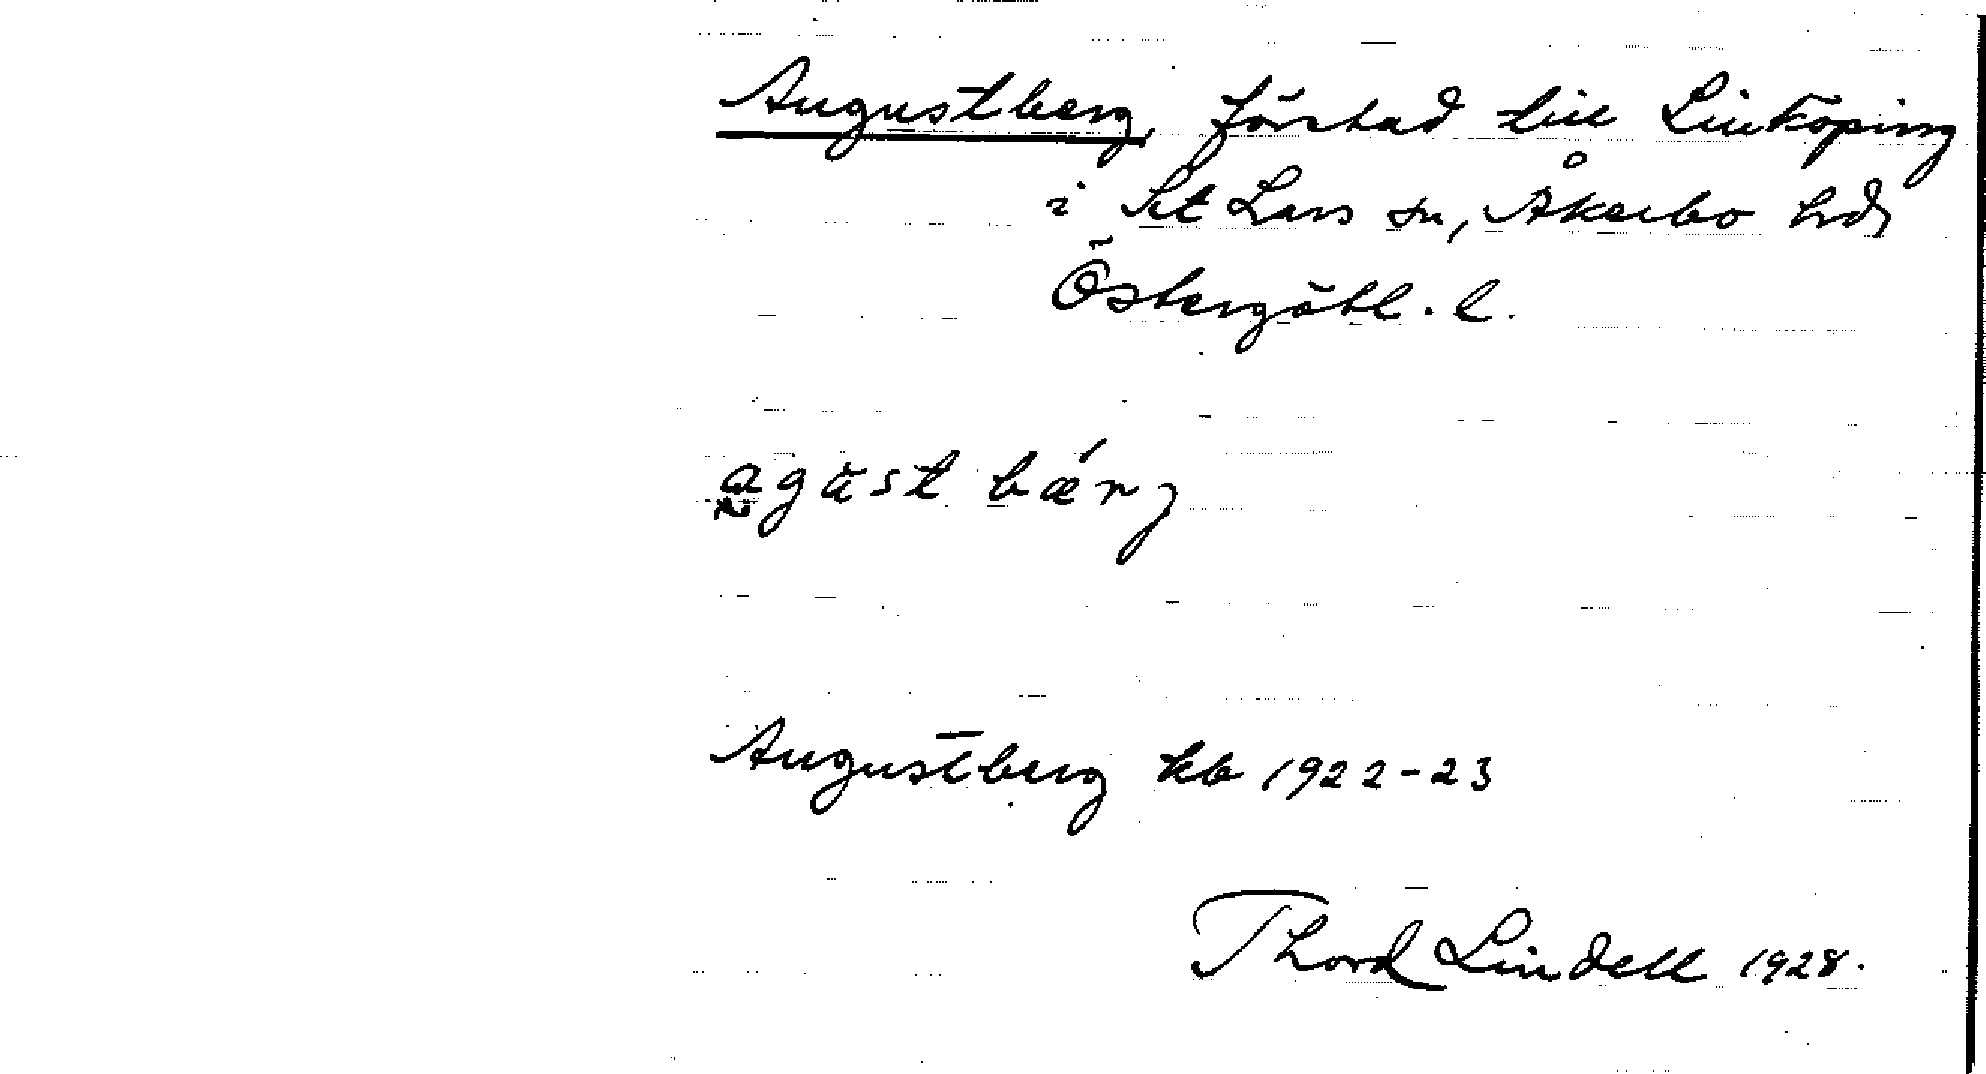 Augustberg, förstad till Linköping
i S:t Lars sn, Åkerbo hd,
Östergötl. l.
agust bærj
Augustberg kb 1922-23
Thord Lindell 1928.